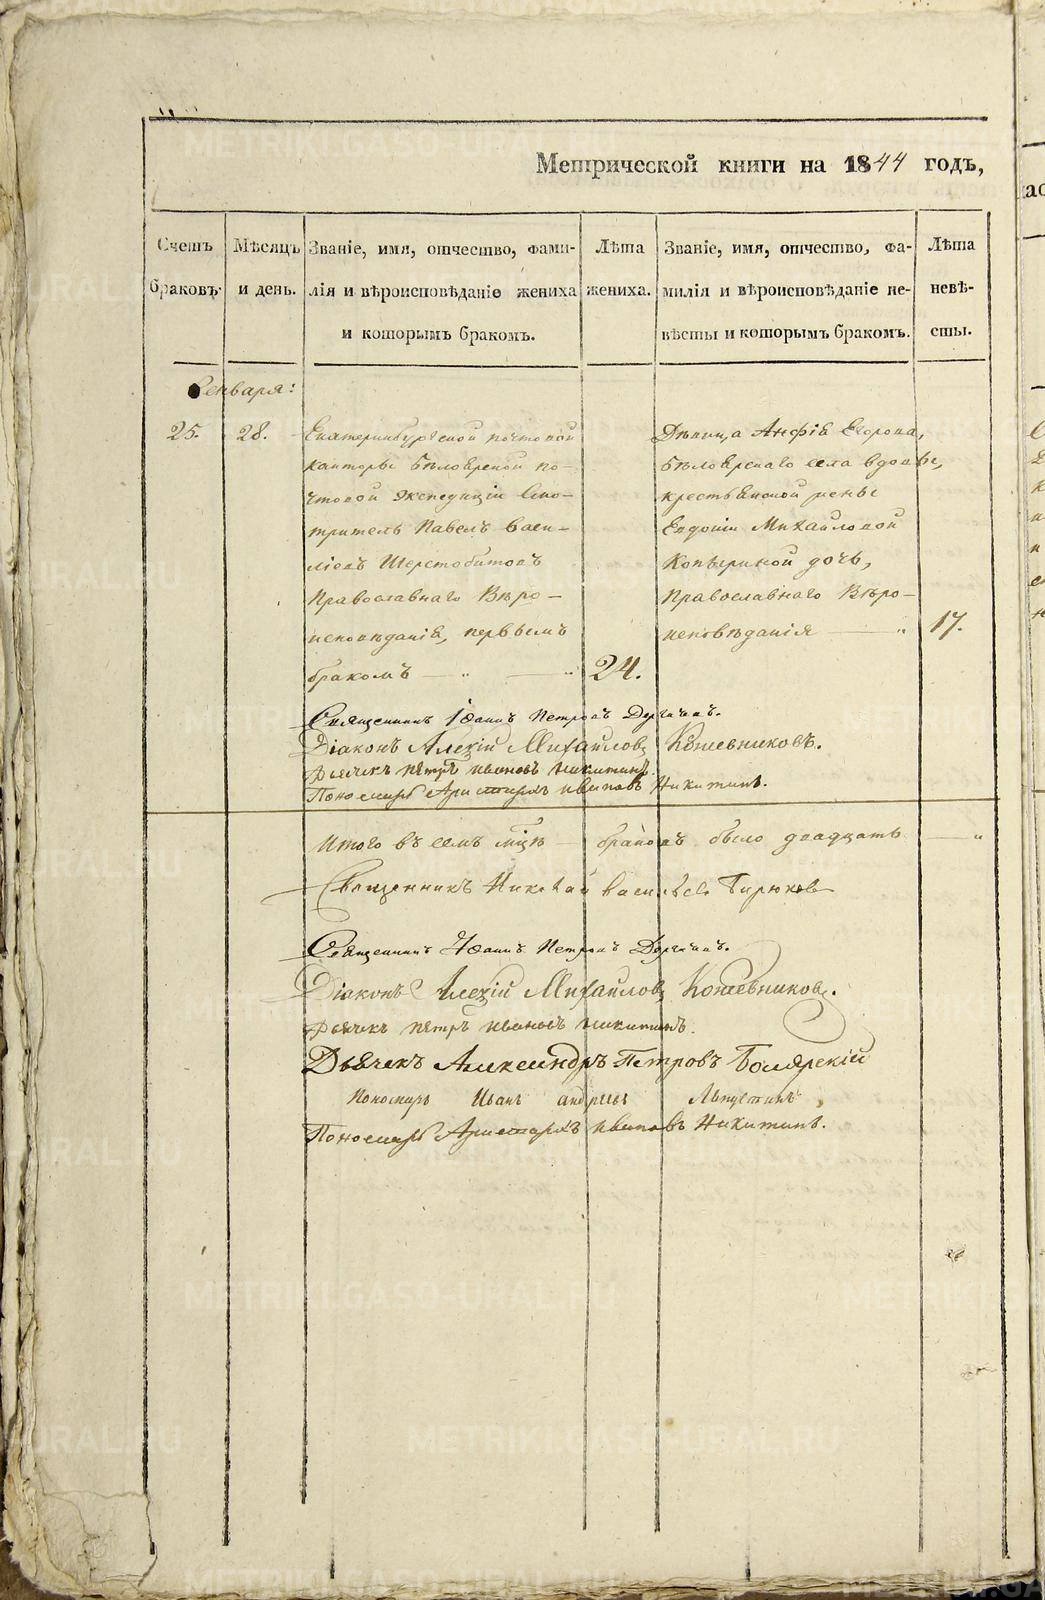 Метрической книги на 1844 годъ,
Счетъ браковъ.
Мѣсяцъ и день.
Званіе, имя, отчество, фами-
лія и вѣроисповѣданіе жениха
и которымъ бракомъ.
Лѣта
жениха.
Званіе, имя, отчество, фа-
милія и вѣроисповѣданіе не-
вѣсты и которымъ бракомъ.
Лѣта
невѣ-
сты.
Генваря:
25.
28.
Екатеринбургской почтовой
канторы Бѣлоярской по-
чтовой Экспедиціи Смо-
тритель Павелъ Васи-
ліевъ Шерстобитовъ
Православнаго Вѣро-
исповѣданія, первымъ
бракомъ
24.
Дѣвица Анфія Егорова,
Бѣлоярскаго села вдовы,
крестьянской жены
Евдокіи Михайловой
дочь,
Православнаго Вѣро-
исповѣданія
17.
Священникъ Іоаннъ Петровъ
Діаконъ Алексій Михайловъ Кожевниковъ.
Дьячекъ Петръ Ивановъ Никитинъ.
Пономарь Аристархъ Ивановъ Никитинъ.
Итого въ семъ мцѣ браковъ было двадцать
Священникъ Николай Васильевъ Бирюковъ
Священникъ Іоаннъ Петровъ
Діаконъ Алексій Михайловъ Кожевниковъ.
Дьячекъ Петръ Ивановъ Никитинъ.
Дьячекъ Александръ Петровъ Боярскій
Пономарь Иванъ Андреевъ
Пономарь Аристархъ Ивановъ Никитинъ.
METRIKI.GASO-URAL.RU